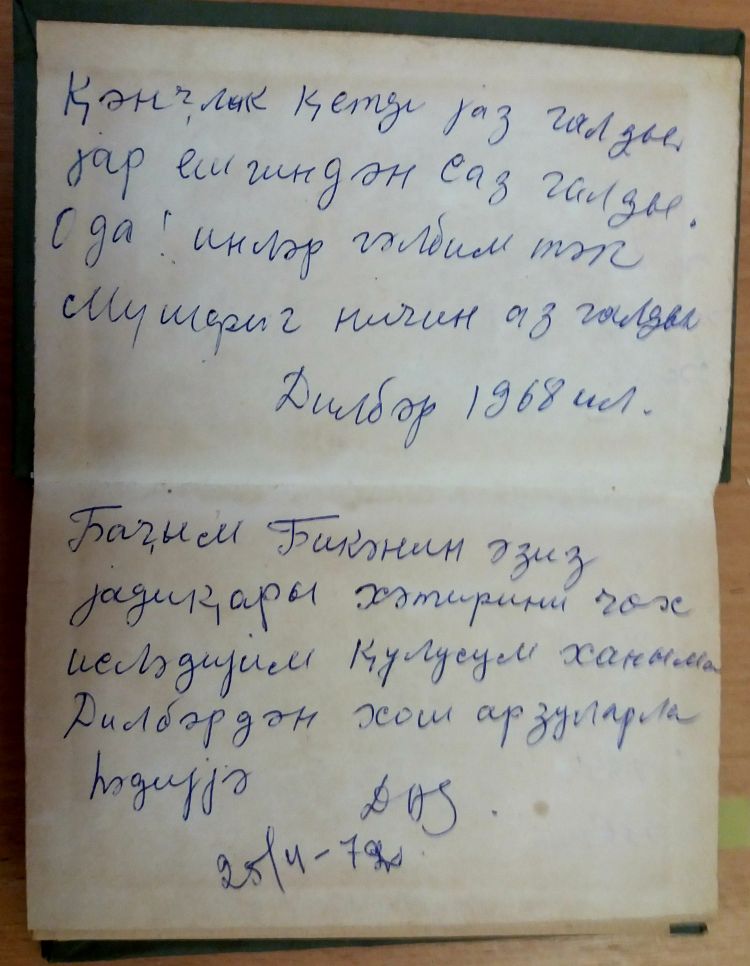 Ҝәнҹлик ҝетди јаз галды
јар ешгиндән саз галды.
О да! инләр гәлбим тәк
Мушфиг ничин аз галды
Дилбәр 1968 ил.
Баҹым Бикәнин әзиз
јадиҝары хәтирини чох
исләдијим Ҝулусум ханыма
Дилбәрдән хош арзуларла
һәдијјә
25/II-79